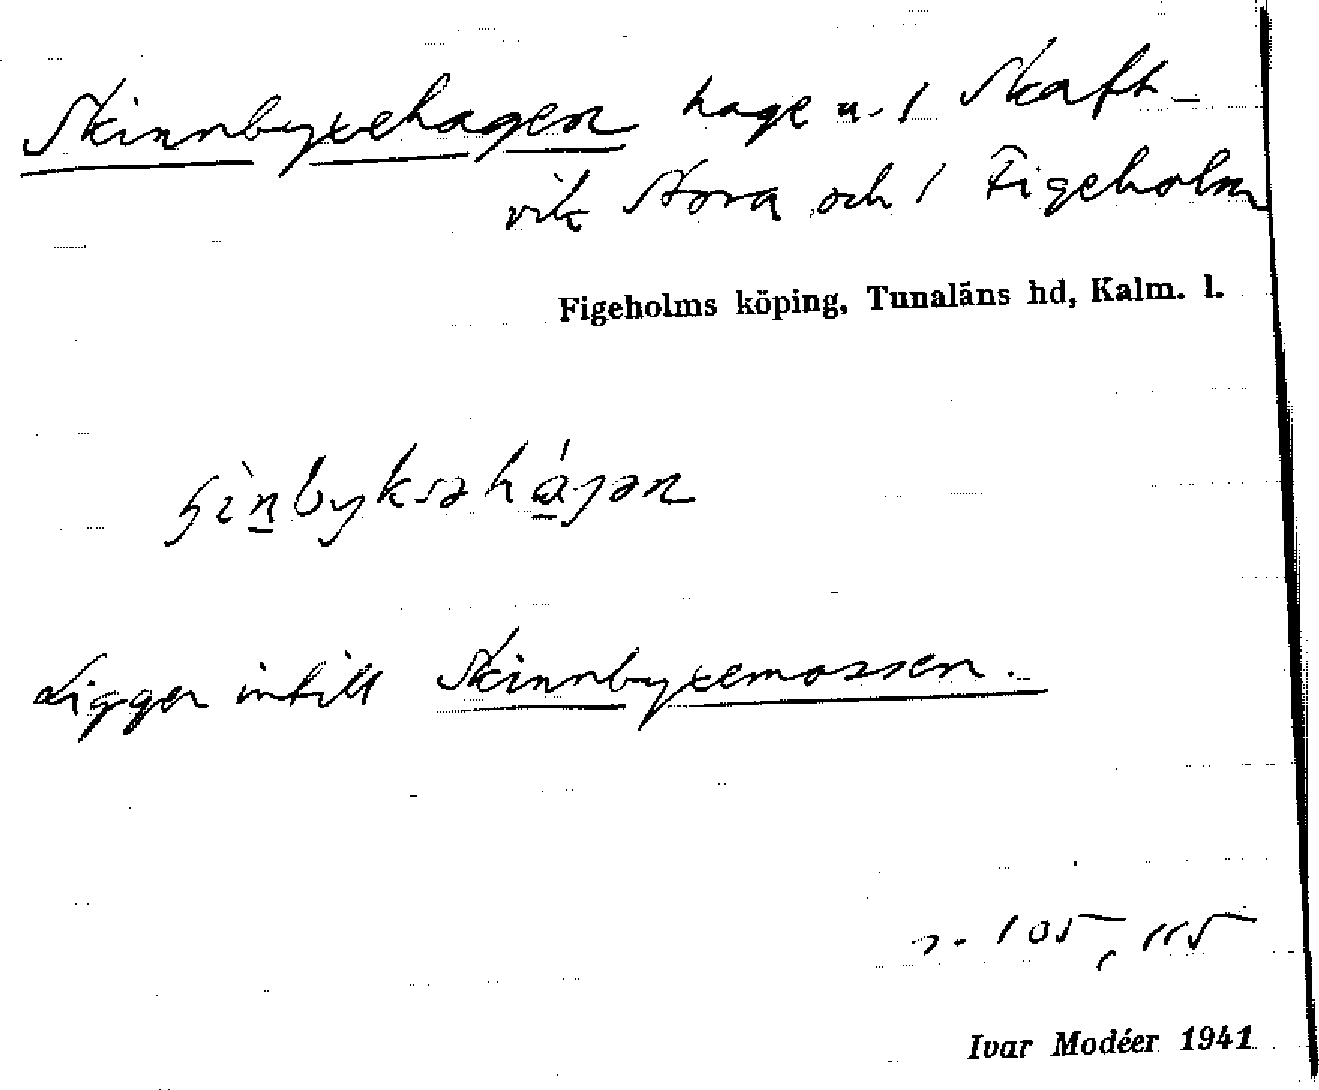 Skinnbyxehagen hage u. 1 Skaft-
vik Stora och 1 Figeholm
Figeholms köping, Tunaläns hd, Kalm. l.
Ligger intill Skinnbyxemossen.
105, 115
Ivar Modéer 1941